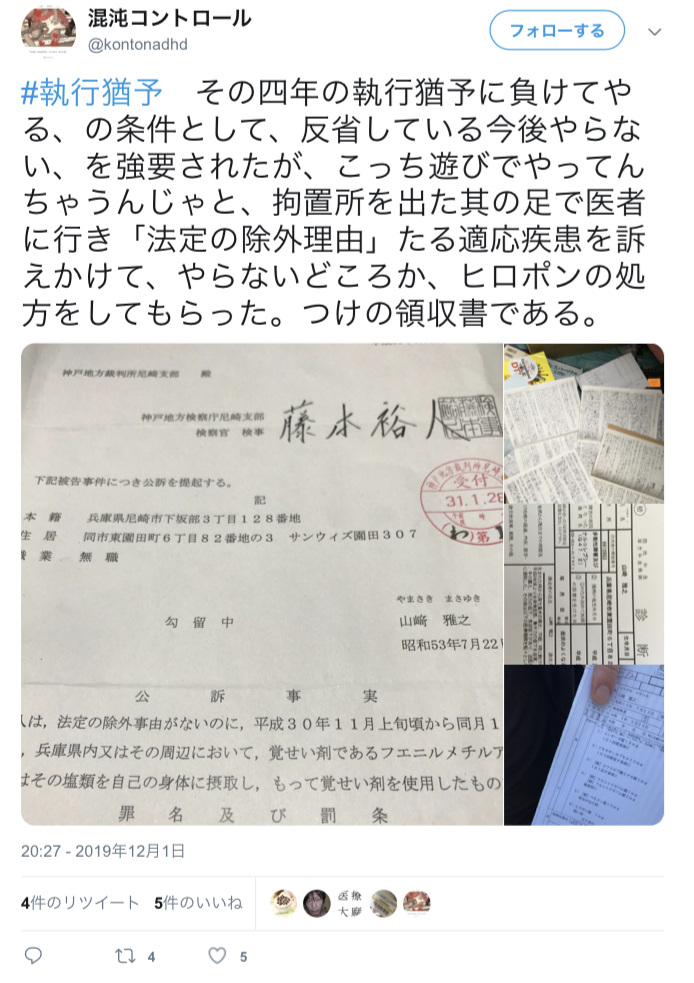 混沌コントロール
@kontonadhd
フォローする
#執行猶予　その四年の執行猶予に負けてや
る、の条件として、反省している今後やらな
い、を強要されたが、こっち遊びでやってん
ちゃうんじゃと、拘置所を出た其の足で医者
に行き「法定の除外理由」たる適応疾患を訴
えかけて、やらないどころか、ヒロポンの処
方をしてもらった。つけの領収書である。
神戸地方裁判所尼崎支部　殿
神戸地方検察庁尼崎支部
検察官　検事　藤木裕人
下記被告事件につき公訴を提起する。
受付
31.1.28
記
本籍　兵庫県尼崎市下坂部３丁目１２８番地
住居　同市東園田町６丁目８２番地の３　サンウィズ園田３０７
業　無職
(わ)第
やまさき　まさゆき
勾留中　山﨑　雅之
昭和53年7月22
公訴事実
人は，法定の除外事由がないのに，平成３０年１１月上旬頃から同月１
，兵庫県内又はその周辺において，覚せい剤であるフエニルメチルア
はその塩類を自己の身体に摂取し，もって覚せい剤を使用したもの
罪名及び罰条
診断
20:27 - 2019年12月1日
4件のリツイート　5件のいいね
医療
大麻
4　5